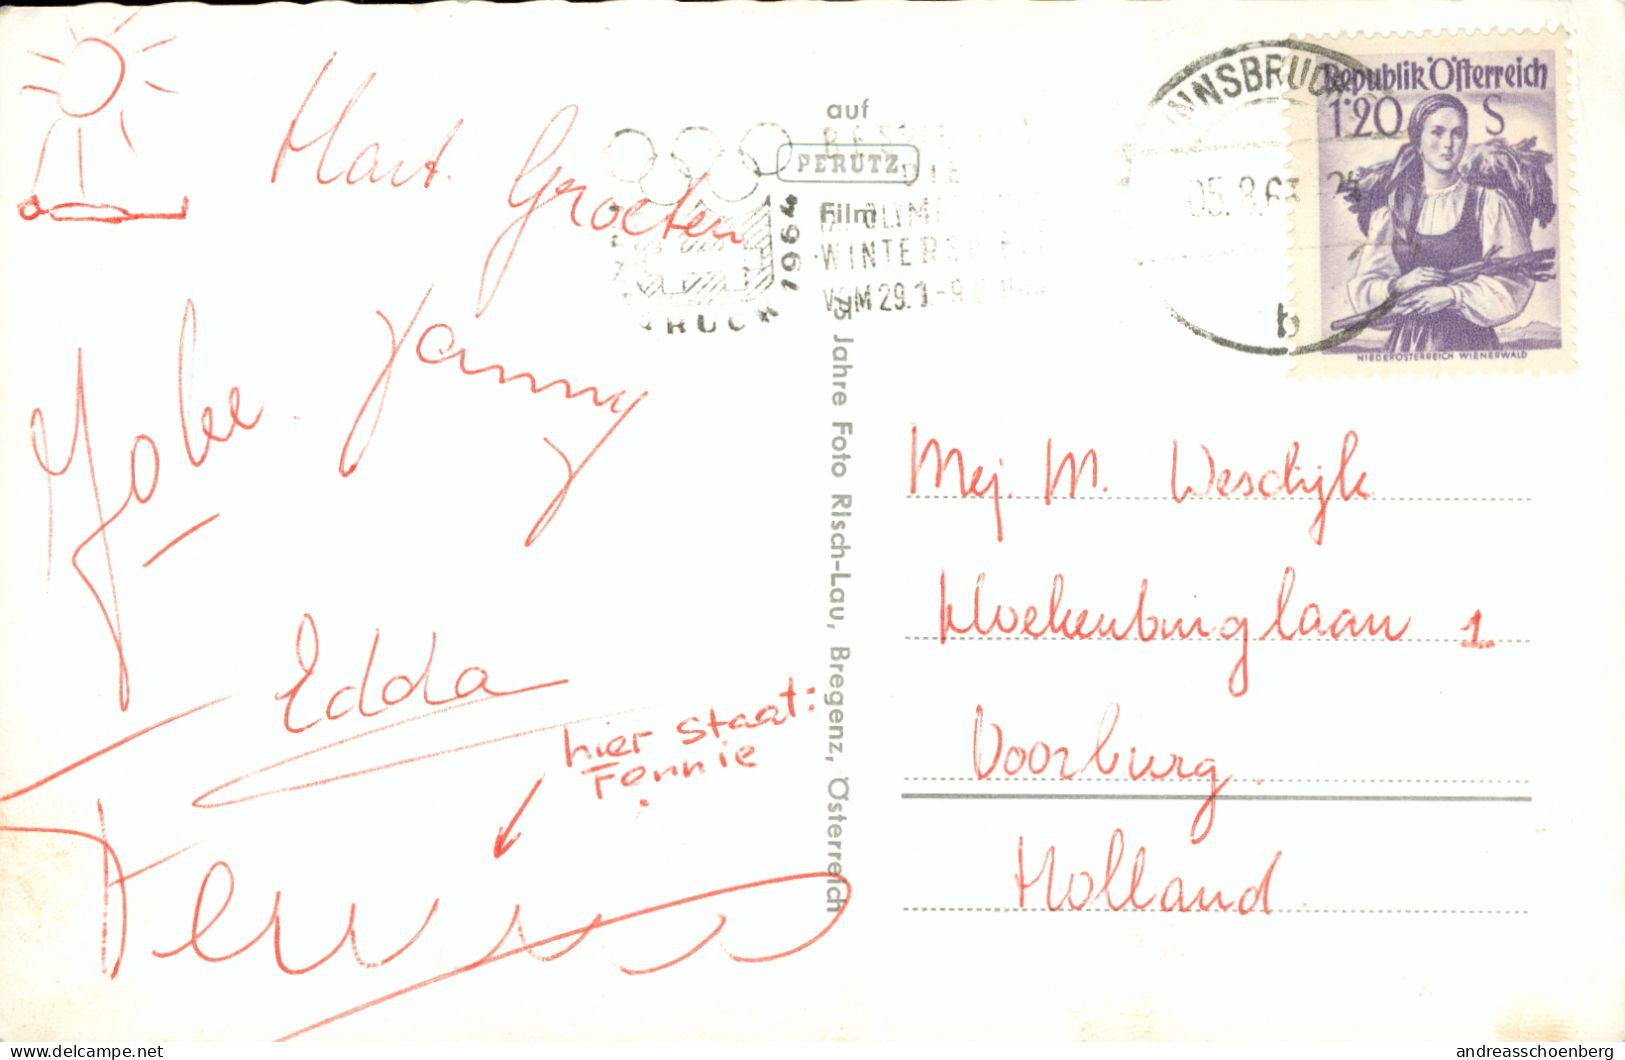 Hart. Groeten
Joke. Janny
Edda
hier staat:
Fennie
Fennie
auf
PERUTZ
Film
75 Jahre Foto Risch-Lau, Bregenz, Österreich
1964
DIE
WINTERSPIELE
VOM 29.1-9.2.1964
INNSBRUCK
05.8.63
b
Republik Österreich
1·20 S
NIEDERÖSTERREICH WIENERWALD
Mej. M. Weschijk
Kloekenburglaan 1
Voorburg.
Holland.
andreasschoenberg